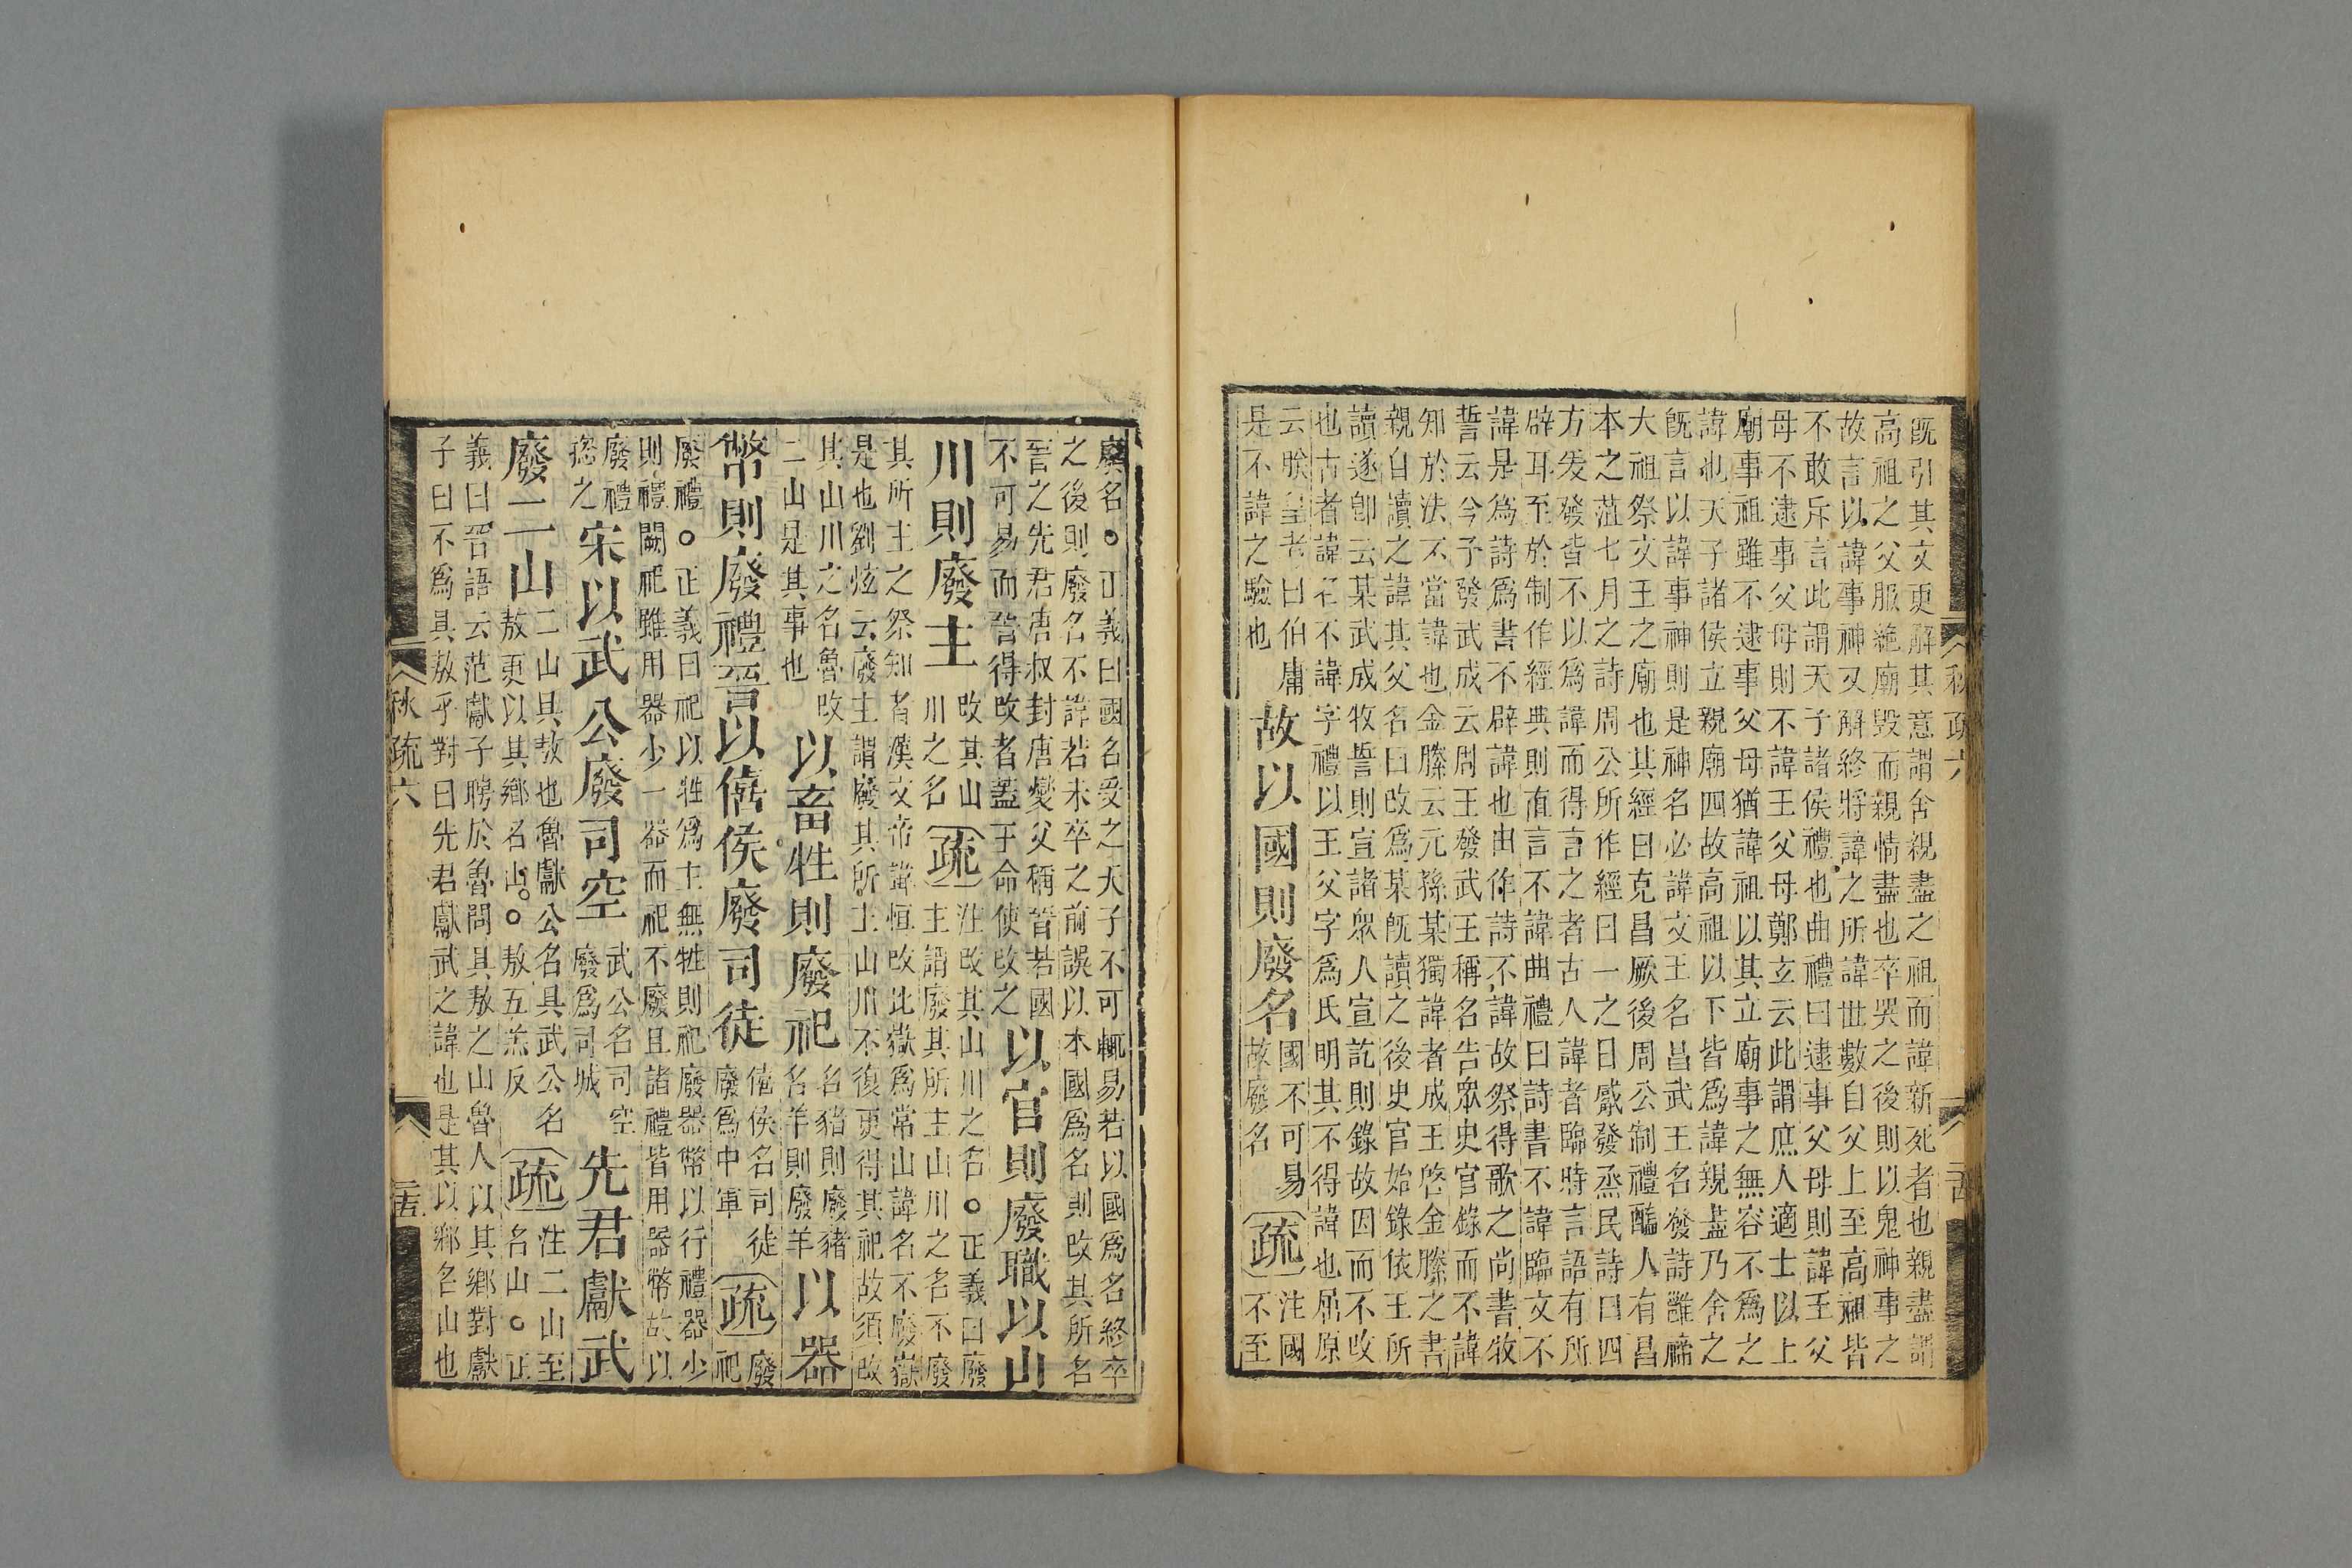 既引其文更解其意謂舍親盡之祖而諱新死者也親盡謂
高祖之父服絶廟毀而親情盡也卒哭之後則以鬼神事之
故言以諱事神又解終將諱之所諱世數自父上至高祖皆
不敢斥言此謂天子諸侯禮也曲禮曰逮事父母則諱王父
母不逮事父母則不諱王父母鄭玄云此謂庶人適士以上
廟事祖雖不逮事父母猶諱祖以其立廟事之無容不爲之
諱也天子諸侯立親廟四故高祖以下皆爲諱親盡乃舍之
既言以諱事神則是神名必諱文王名昌武王名發詩雝禘
大祖祭文王之廟也其經曰克昌厥後周公制禮醢人有昌
本之菹七月之詩周公所作經曰一之日觱發烝民詩曰四
方爰發皆不以爲諱而得言之者古人諱者臨時言語有所
辟耳至於制作經典則直言不諱曲禮曰詩書不諱臨文不
諱是爲詩爲書不辟諱也由作詩不諱故祭得歌之尚書牧
誓云今予發武成云周王發武王稱名告衆史官錄而不諱
知於法不當諱也金縢云元孫某獨諱者成王啓金縢之書
親自讀之諱其父名曰改爲某既讀之後史官始錄依王所
讀遂即云某武成牧誓則宣諸衆人宣訖則錄故因而不改
也古者諱名不諱字禮以王父字爲氏明其不得諱也屈原
云朕皇考曰伯庸
是不諱之驗也
故以國則廢名
國不可易
故廢名
疏
注國
不至
秋疏六
二十四
廢名○正義曰國名受之天子不可輒易若以國爲名終卒
之後則廢名不諱若未卒之前誤以本國爲名則改其所名
晉之先君唐叔封唐燮父稱晉若國
不可易而晉得改者蓋王命使改之
以官則廢職以山
川則廢主
改其山
川之名
疏
注改其山川之名○正義曰廢
主謂廢其所主山川之名不廢
其所主之祭知者漢文帝諱恒改北嶽爲常山諱名不廢嶽
是也劉炫云廢主謂廢其所主山川不復更得其祀故須改
其山川之名魯改
二山是其事也
以畜牲則廢祀
名豬則廢豬
名羊則廢羊
以器
幣則廢禮晉以僖侯廢司徒
僖侯名司徒
廢爲中軍
疏
廢
祀
廢禮○正義曰祀以牲爲主無牲則祀廢器幣以行禮器少
則禮闕祀雖用器少一器而祀不廢且諸禮皆用器幣故以
廢禮
揔之
宋以武公廢司空
武公名司空
廢爲司城
先君獻武
廢二山
二山具敖也魯獻公名具武公名
敖更以其鄉名山○敖五羔反
疏
注二山至
名山○正
義曰晉語云范獻子聘於魯問具敖之山魯人以其鄉對獻
子曰不爲具敖乎對曰先君獻武之諱也是其以鄉名山也
秋疏六
二十五